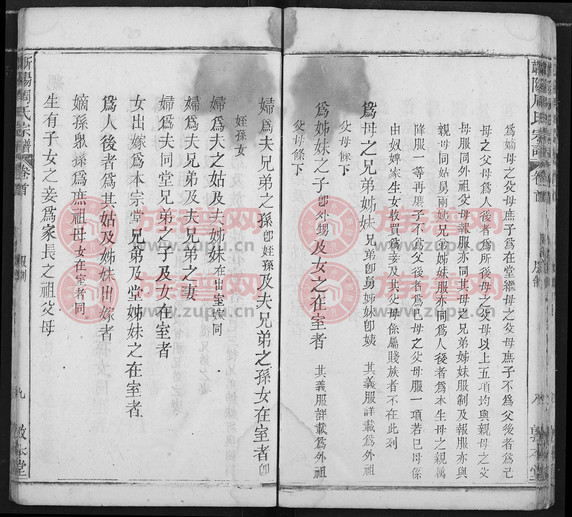 為嫡母之父母庶子為在堂繼母之父母庶子不為父後者為己
母之父母為人後者為所後母之父母以上五項均與親母之父
母服同外祖父母報服亦同其母之兄弟姊妹服制及報服亦與
親母同姑舅兩姨兄弟姊妹服亦同為人後者為本生母之親屬
降服一等再庶子不為父後者為己母之父母服一項若己母係
由奴婢家生女收買為妾及其父母係屬賤族者不在此列
為母之兄弟姊妹 兄弟卽舅姊妹卽姨 其義服詳載為外祖
父母條下
為姊妹之子 卽外甥 及女之在室者 其義服詳載為外祖
父母條下
婦為夫兄弟之孫 卽姪孫 及夫兄弟之孫女在室者 卽
姪孫女
婦為夫之姑及夫姊妹 在室出嫁同
婦為夫兄弟及夫兄弟之妻
婦為夫同堂兄弟之子及女在室者
女出嫁為本宗堂兄弟及堂姊妹之在室者
為人後者為其姑及姊妹出嫁者
嫡孫衆孫為庶祖母 女在室者同
生有子女之妾為家長之祖父母
周氏宗譜
卷首
服制
九
敦本堂
族譜网
www.zupu.cn